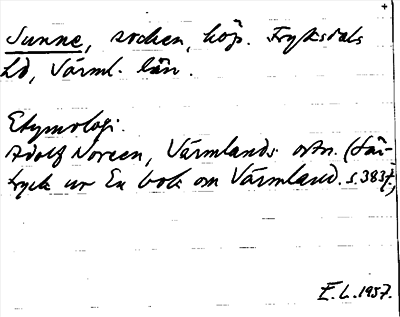 Sunne, socken, köp. Fryksdals
hd, Värml. län.
Etymologi.
Adolf Noreen, Värmlands ortn. (Sär-
tryck ur En bok om Värmland. s. 383f.)
E. L. 1957.